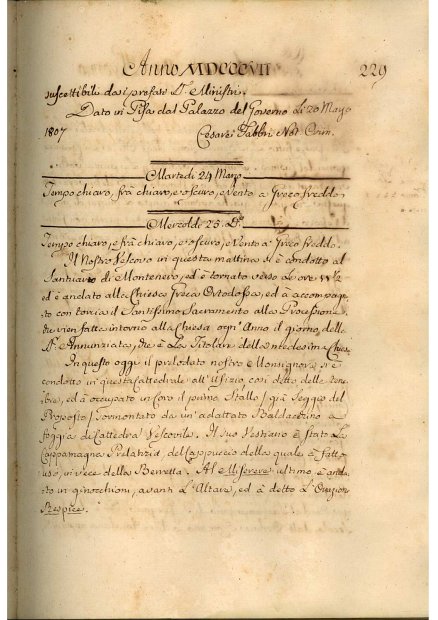 Anno MDCCCVII 229
suscettibili dai prefati Di Ministri.
Dato in Pisa dal Palazzo del Governo Li 20 Marzo
1807 Cesare Fabbri Not. Crim.
Martedì 24 Marzo
Tempo chiaro, frà chiaro, e oscuro, e vento a Greco freddo.
Mercoldì 25. Do
Tempo chiaro, e frà chiaro, e oscuro, e Vento a Greco freddo.
Il Nostro Vescovo in questa mattina si è condotto al
Santuario di Montenero, ed è tornato verso le ore
ed è andato alla Chiesa Greca Ortodossa, ed à accompagna
to con torcia il Santissimo Sacramento alla Processione
che vien fatta intorno alla Chiesa ogn'Anno il giorno della
SS. Annunziata, che è La Titolare della medesima Chiesa.
In questo oggi il prelodato nostro Monsignore si è
condotto in questa Cattedrale all'Ufizio così detto delle Tene
bre, ed à occupato in Coro il primo Stallo, già Seggio del
Proposto, sormontato da un'adattato Baldacchino a
foggia di Cattedra Vescovile. Il suo Vestiario è stato La
Cappamagna Prelatizia, del Cappuccio della quale è fatto
uso, in vece della Berretta. Al Miserere ultimo è anda
to in ginocchioni, avanti L'Altare, ed à detto L'Orazione
Respice.